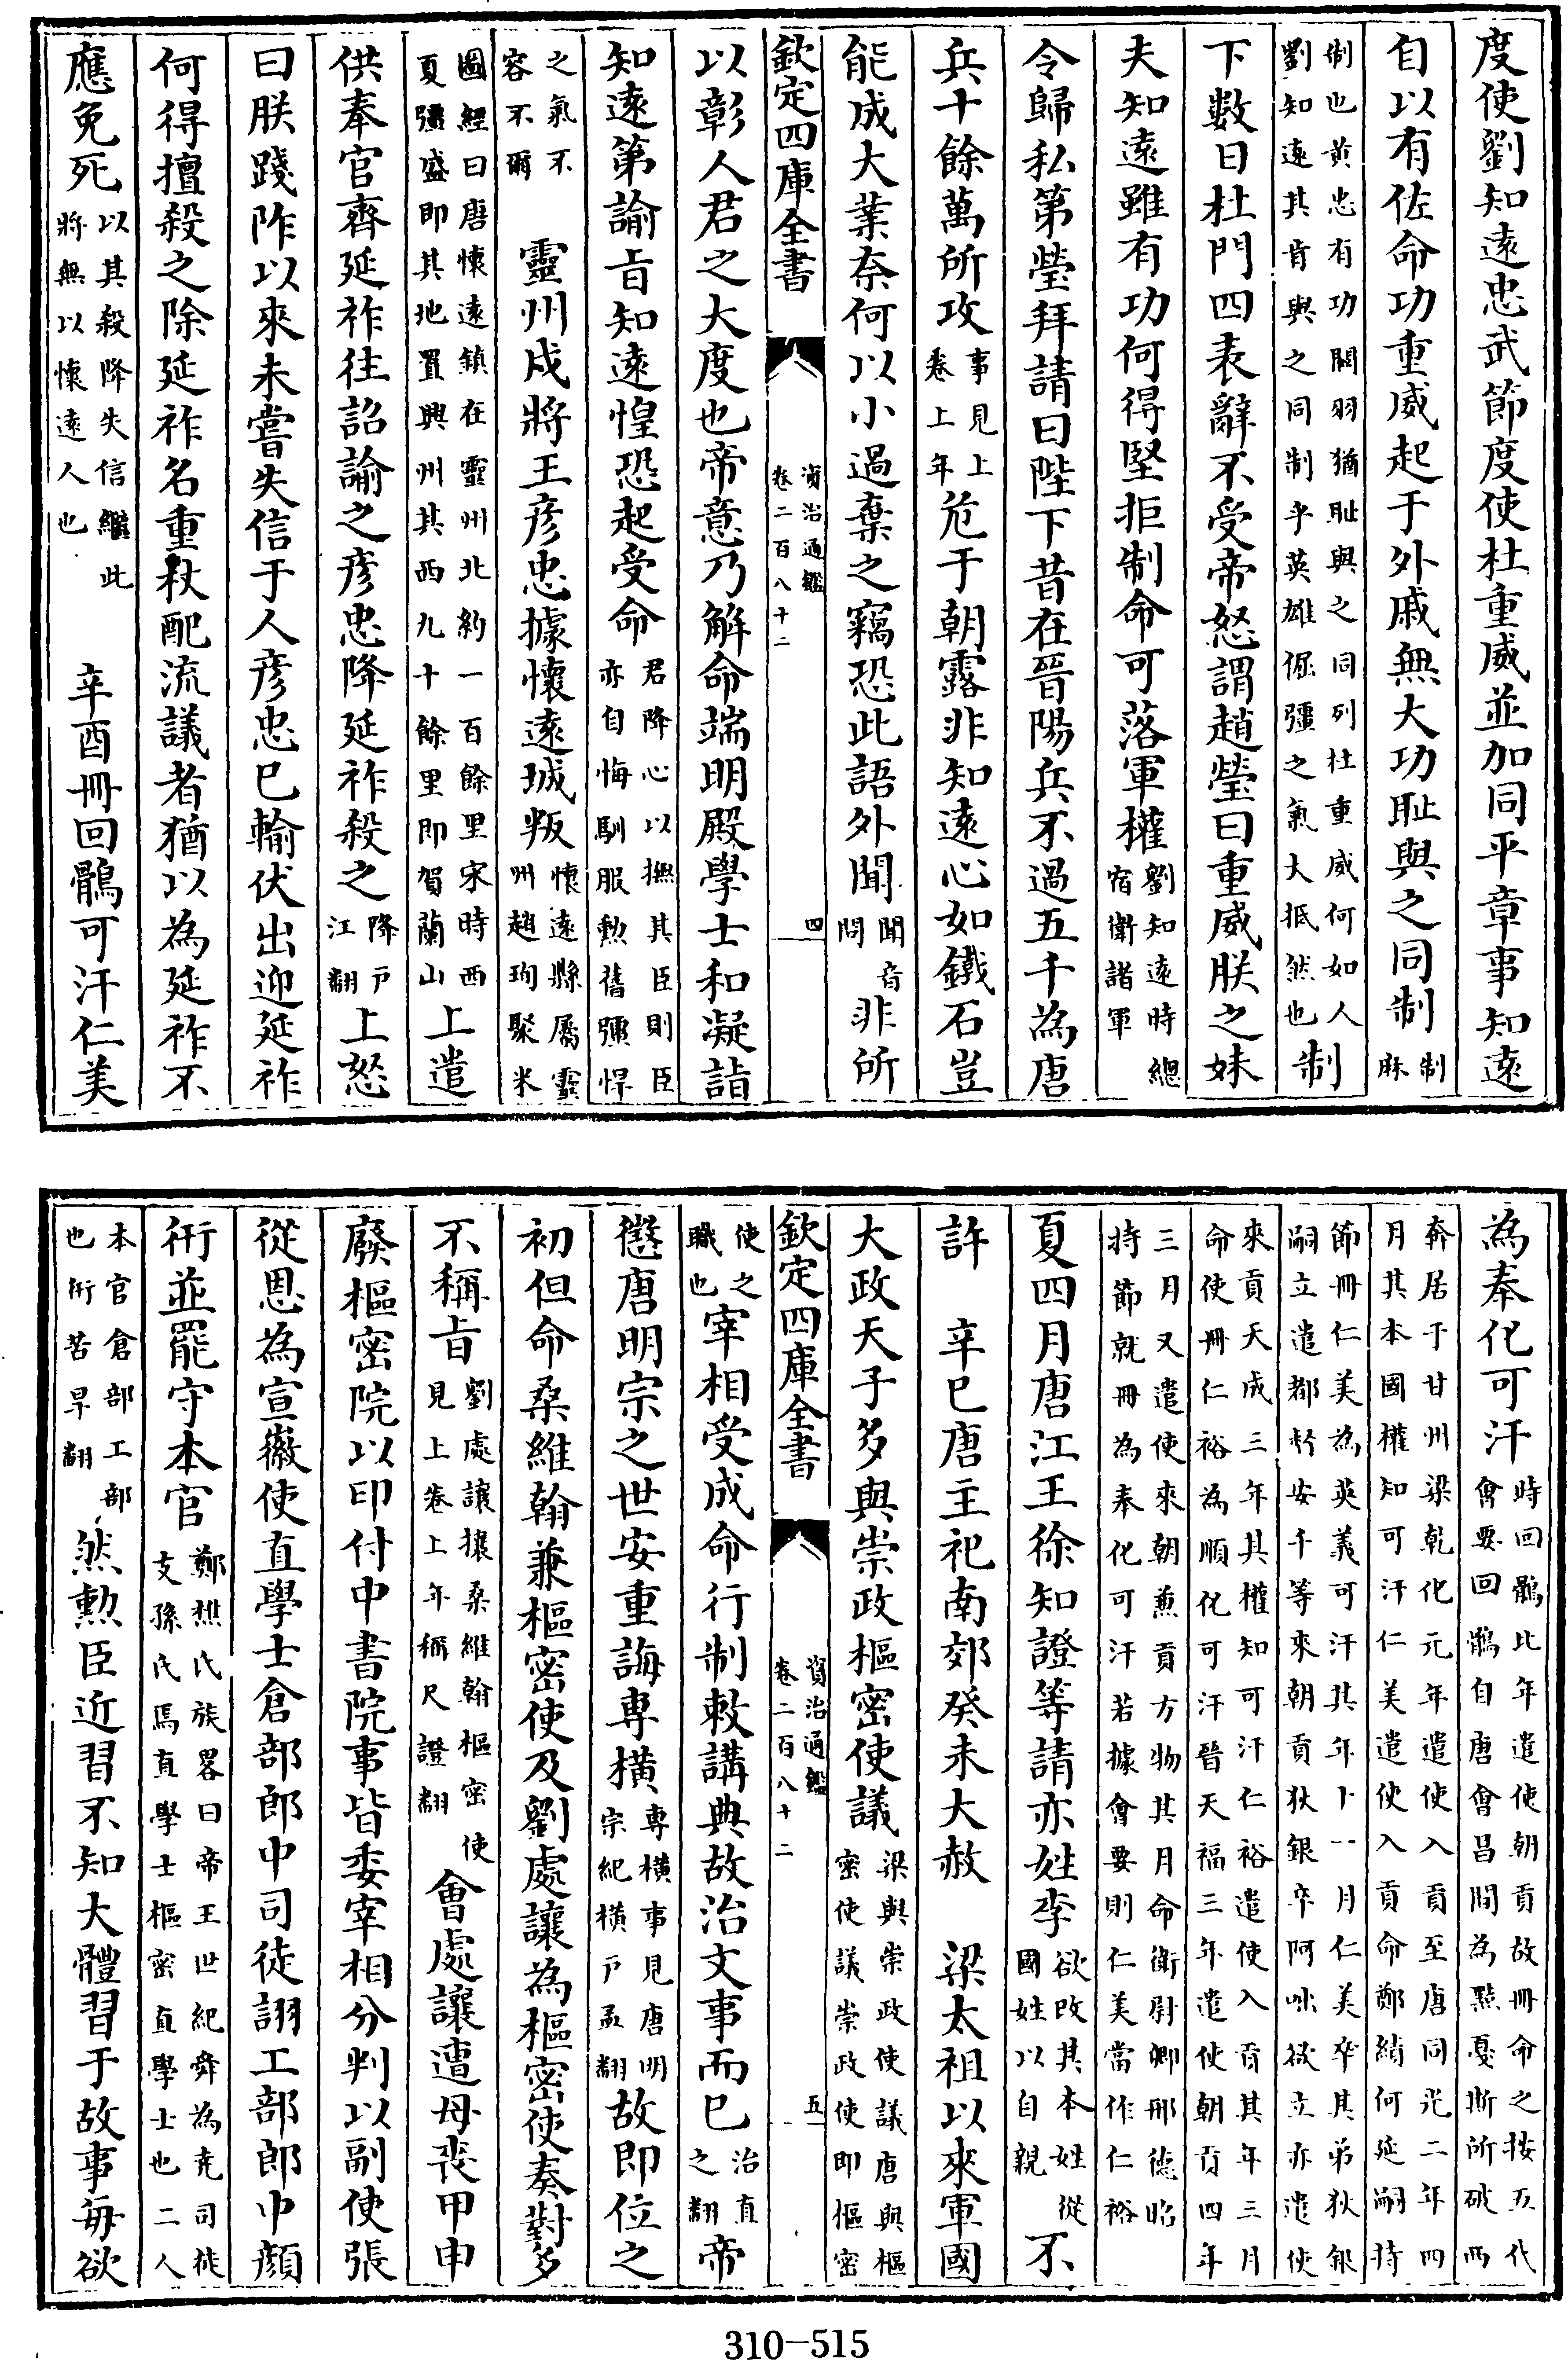 度使劉知遠忠武節度使杜重威並加同平章事知遠
自以有佐命功重威起于外戚無大功恥與之同制制麻
制也黄忠有功關羽猶恥與之同列杜重威何如人劉知遠其肯與之同制乎英雄倔彊之氣大抵然也制
下數日杜門四表辭不受帝怒謂趙瑩曰重威朕之妹
夫知遠雖有功何得堅拒制命可落軍權劉知遠時總宿衛諸軍
令歸私第瑩拜請曰陛下昔在晉陽兵不過五千為唐
兵十餘萬所攻事見上卷上年危于朝露非知遠心如鐵石豈
能成大業奈何以小過棄之竊恐此語外聞聞音問非所
欽定四庫全書 資治通鑑卷二百八十二 四
以彰人君之大度也帝意乃解命端明殿學士和凝詣
知遠第諭旨知遠惶恐起受命君降心以撫其臣則臣亦自悔馴服勲舊彊悍
之氣不容不爾 靈州戍將王彦忠據懷遠城叛懷遠縣屬靈州趙珣聚米
圖經曰唐懷遠鎮在靈州北約一百餘里宋時西夏彊盛即其地置興州其西九十餘里即賀蘭山上遣
供奉官齊延祚往詔諭之彦忠降延祚殺之降戶江翻上怒
曰朕踐阼以來未嘗失信于人彦忠已輸伏出迎延祚
何得擅殺之除延祚名重杖配流議者猶以為延祚不
應免死以其殺降失信繼此將無以懷遠人也 辛酉冊回鶻可汗仁美
為奉化可汗時回鶻比年遣使朝貢故冊命之按五代會要回鶻自唐會昌間為黠戛斯所破西
奔居于甘州梁乾化元年遣使入貢至唐同光二年四月其本國權知可汗仁美遣使入貢命鄭績何延嗣持
節冊仁美為英義可汗其年十一月仁美卒其弟狄銀嗣立遣都督安千等來朝貢狄銀卒阿咄欲立亦遣使
來貢天成三年其權知可汗仁裕遣使入貢其年三月命使冊仁裕為順化可汗晉天福三年遣使朝貢四年
三月又遣使來朝兼貢方物其月命衛尉卿邢德昭持節就冊為奉化可汗若據會要則仁美當作仁裕
夏四月唐江王徐知證等請亦姓李欲改其本姓從國姓以自親不
許 辛巳唐主祀南郊癸未大赦 梁太祖以來軍國
大政天子多與崇政樞密使議梁與崇政使議唐與樞密使議崇政使即樞密
欽定四庫全書 資治通鑑卷二百八十二 五
使之職也宰相受成命行制敕講典故治文事而已治直之翻帝
懲唐明宗之世安重誨專橫專橫事見唐明宗紀橫戶孟翻故即位之
初但命桑維翰兼樞密使及劉處讓為樞密使奏對多
不稱旨劉處讓攘桑維翰樞密使見上卷上年稱尺證翻會處讓遭母喪甲申
廢樞密院以印付中書院事皆委宰相分判以副使張
從恩為宣徽使直學士倉部郎中司徒詡工部郎中顔
衎並罷守本官鄭樵氏族畧曰帝王世紀舜為堯司徒支孫氏焉直學士樞密直學士也二人
本官倉部工部也衎苦旱翻然勲臣近習不知大體習于故事毎欲
310-515